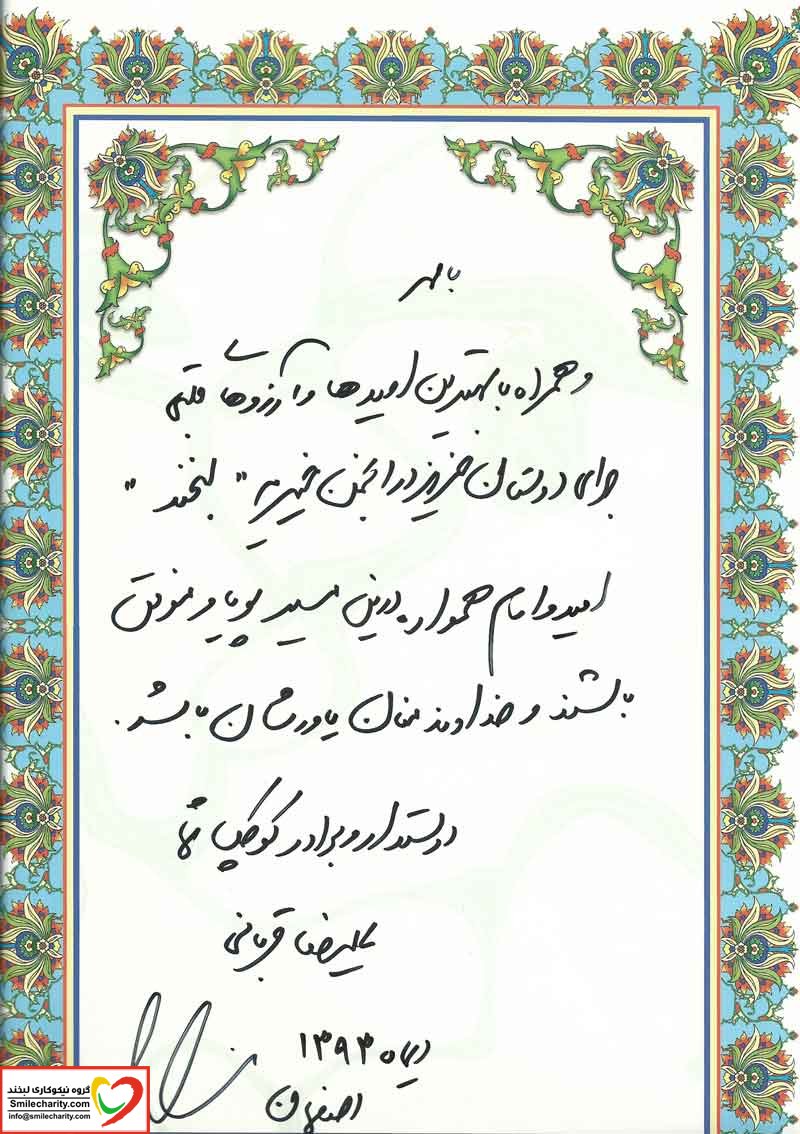 با مهر
و همراه با بهترین امیدها و آرزوهای قلبی
برای دوستان عزیز در انجمن خیریه "لبخند"
امیدوارم همواره در این مسیر پویا و موفق
باشند و خداوند منان یاورشان باشد.
دوستدار و برادر کوچک شما
علیرضا قربانی
دی ماه ۱۳۹۳
اصفهان
گروه نیکوکاری لبخند
Smilecharity.com
info@smilecharity.com